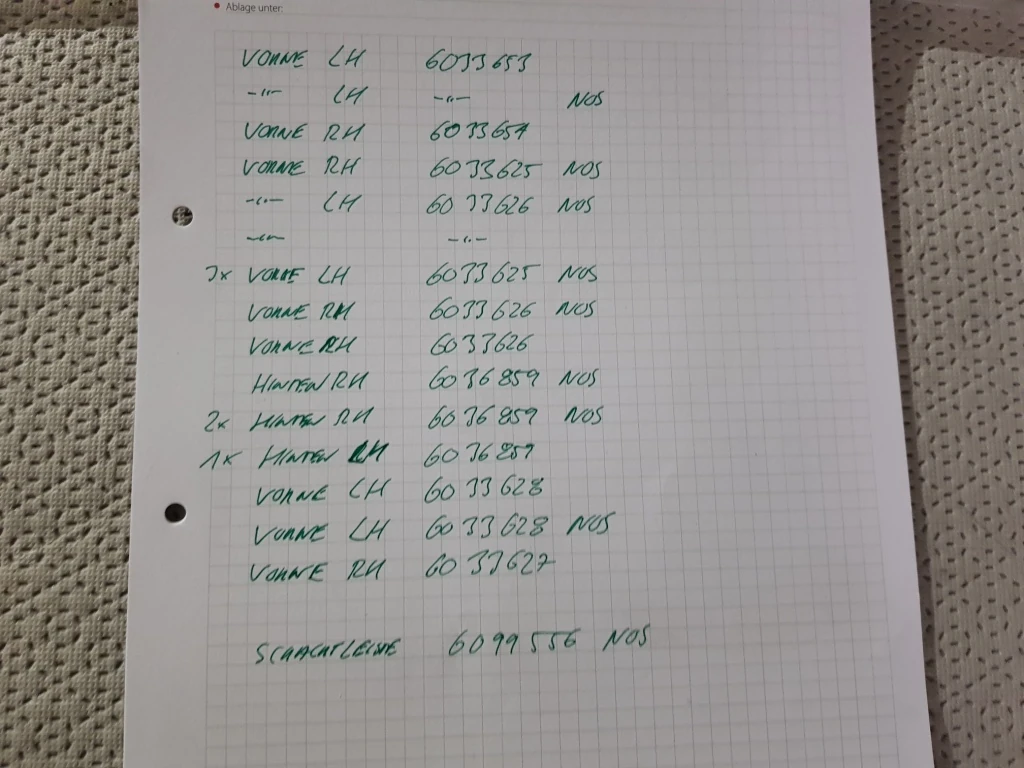 Ablage unter:
VORNE LH 6033653
-"- LH -"- NOS
VORNE RH 6033657
VORNE RH 6033625 NOS
-"- LH 6033626 NOS
-"- -"-
3x VORNE LH 6033625 NOS
VORNE RH 6033626 NOS
VORNE RH 6033626
HINTEN RH 6036859 NOS
2x HINTEN RH 6036859 NOS
1x HINTEN LH 6036857
VORNE LH 6033628
VORNE LH 6033628 NOS
VORNE RH 6033627
SCHACHTLEISTE 6099556 NOS